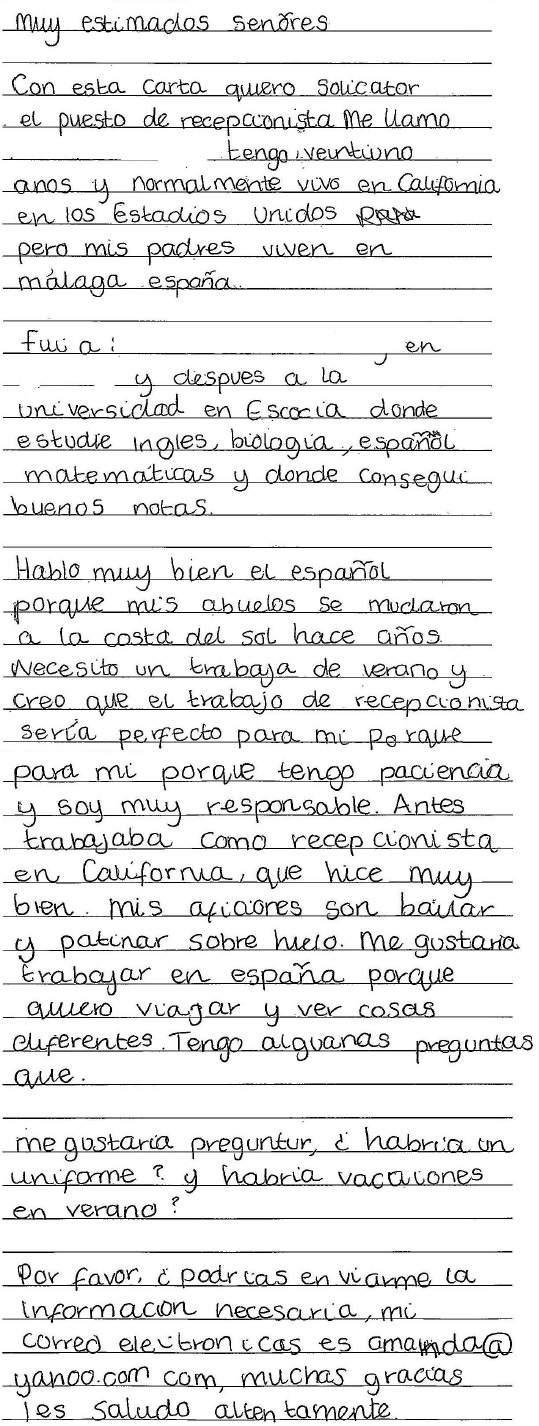 Muy estimados senõres
Con esta carta quiero solicator
el puesto de recepcionista Me llamo
tengo, veintiuno
anos y normalmente vivo en California
en los Estadios Unidos
pero mis padres viven en
málaga españa.
Fui a:
, en
y despues a la
universidad en Escocia donde
estudie ingles, biologia, español
matematicas y donde consegui
buenos notas.
Hablo muy bien el español
porque mis abuelos se mudaron
a la costa del sol hace años
Necesito un trabaja de verano y
creo que el trabajo de recepcionista
sería perfecto para mi porque
para mi porque tengo paciencia
y soy muy responsable. Antes
trabajaba como recepcionista
en California, que hice muy
bien. mis aficiores son bailar
y patinar sobre hielo. Me gustaria
trabajar en españa porque
quiero viajar y ver cosas
diferentes. Tengo alguanas preguntas
que.
me gustaria preguntur, ¿ habria un
uniforme? y habria vacaciones
en verano?
Por favor, ¿ podrias enviarme la
informacion necesaria, mi
correo electronicas es amanda@
yahoo.com com, muchas gracias
les saludo altentamente